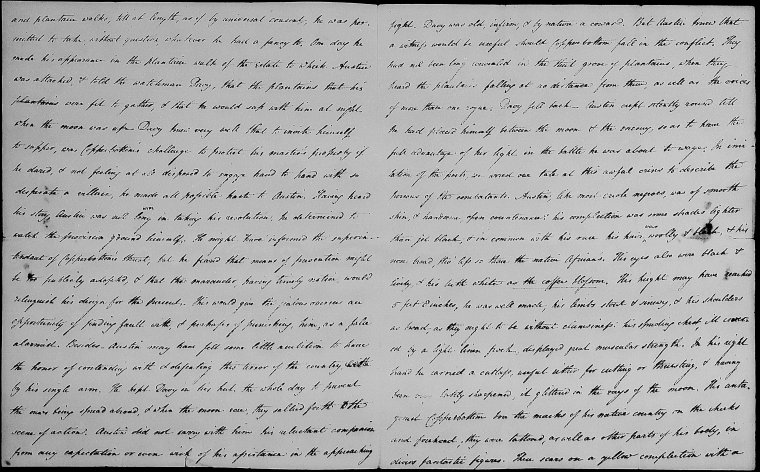 and plantain walks, till at length, as if by universal consent, he was per-
mitted to take, without question whatever he had a fancy to. One day he
made his appearance in the plantain walk of the estate to which Austin
was attached, & told the watchman Davy, that the plantains that his
plantains were fit to gather, & that he would sup with him at night,
when the moon was up. Davy knew very well that to invite himself
to supper, was Copperbottom's challenge to protect his master's property if
he dared, & not feeling at all disposed to engage hand to hand with so
desperate a villain, he made all possible haste to Austin. Having heard
his story Austin was not long in taking his resolution. He determined to
watch the provision ground himself. He might have informed the superin-
tendant of Copperbottom's threat, but he feared that means of prevention might
be too publicly adopted, & that the marauder, having timely notice, would
relinquish his design for the present. This would give the jealous overseer an
opportunity of finding fault with, & perhaps of punishing him, as a false
alarmist. Besides Austin may have felt some little ambition to have
the honor of contending with & defeating this terror of the country
by his single arm. He kept Davy in his hut the whole day to prevent
the news being spread abroad, & when the moon rose, they sallied forth to the
scene of action. Austin did not carry with him his reluctant companion
from any expectation or even wish of his assistance in the approaching
fight. Davy was old, infirm, & by nature a coward. But Austin knew that
a witness would be useful should Copperbottom fall in the conflict. They
had not been long concealed in the thick grove of plantains, when they
heard the plantains falling at no distance from them, as well as the voices
of more than one rogue; Davy fell back — Austin crept silently round till
he had placed himself between the moon & the enemy, so as to have the
full advantage of her light in the battle he was about to wage. In imi-
tation of the poets, we arrest our tale at this awful crisis to describe the
heroes of the combatants. Austin, like most creole negroes, was of smooth
skin, & handsome open countenance; his complection was some shades lighter
than jet black, & in common with his race his hair was woolly & black, & his
nose tho' this less so than the native Africans. His eyes also were black &
lively, & his teeth white as the coffee blossom. His height may have reached
5 feet 8 inches, he was well made, his limbs stout & sinewy, & his shoulders
as broad as they ought to be without clumsiness: his spreading chest ill cover-
ed by a light linen frock, displayed great muscular strength. In his right
hand he carried a cutlass, useful either for cutting or thrusting, & having
been lately sharpened, it glittered in the rays of the moon. His anta-
gonist Copperbottom bore the marks of his native country on the cheeks
and forehead, they were tattooed, as well as other parts of his body, in
divers fantastic figures. These scars on a yellow complection with a